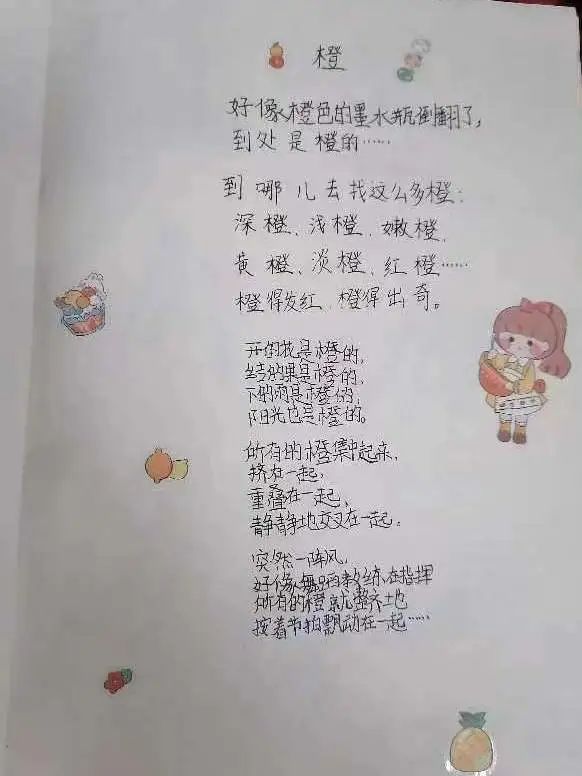 橙
好像橙色的墨水瓶倒翻了,
到处是橙的……
到哪儿去找这么多橙:
深橙、浅橙、嫩橙、
黄橙、淡橙、红橙……
橙得发红、橙得出奇。
开的花是橙的,
结的果是橙的,
下的雨是橙的,
阳光也是橙的。
所有的橙集中起来,
挤在一起,
重叠在一起,
静静地交叉在一起。
突然一阵风,
好像舞蹈教练在指挥
所有的橙就整齐地
按着节拍飘动在一起……